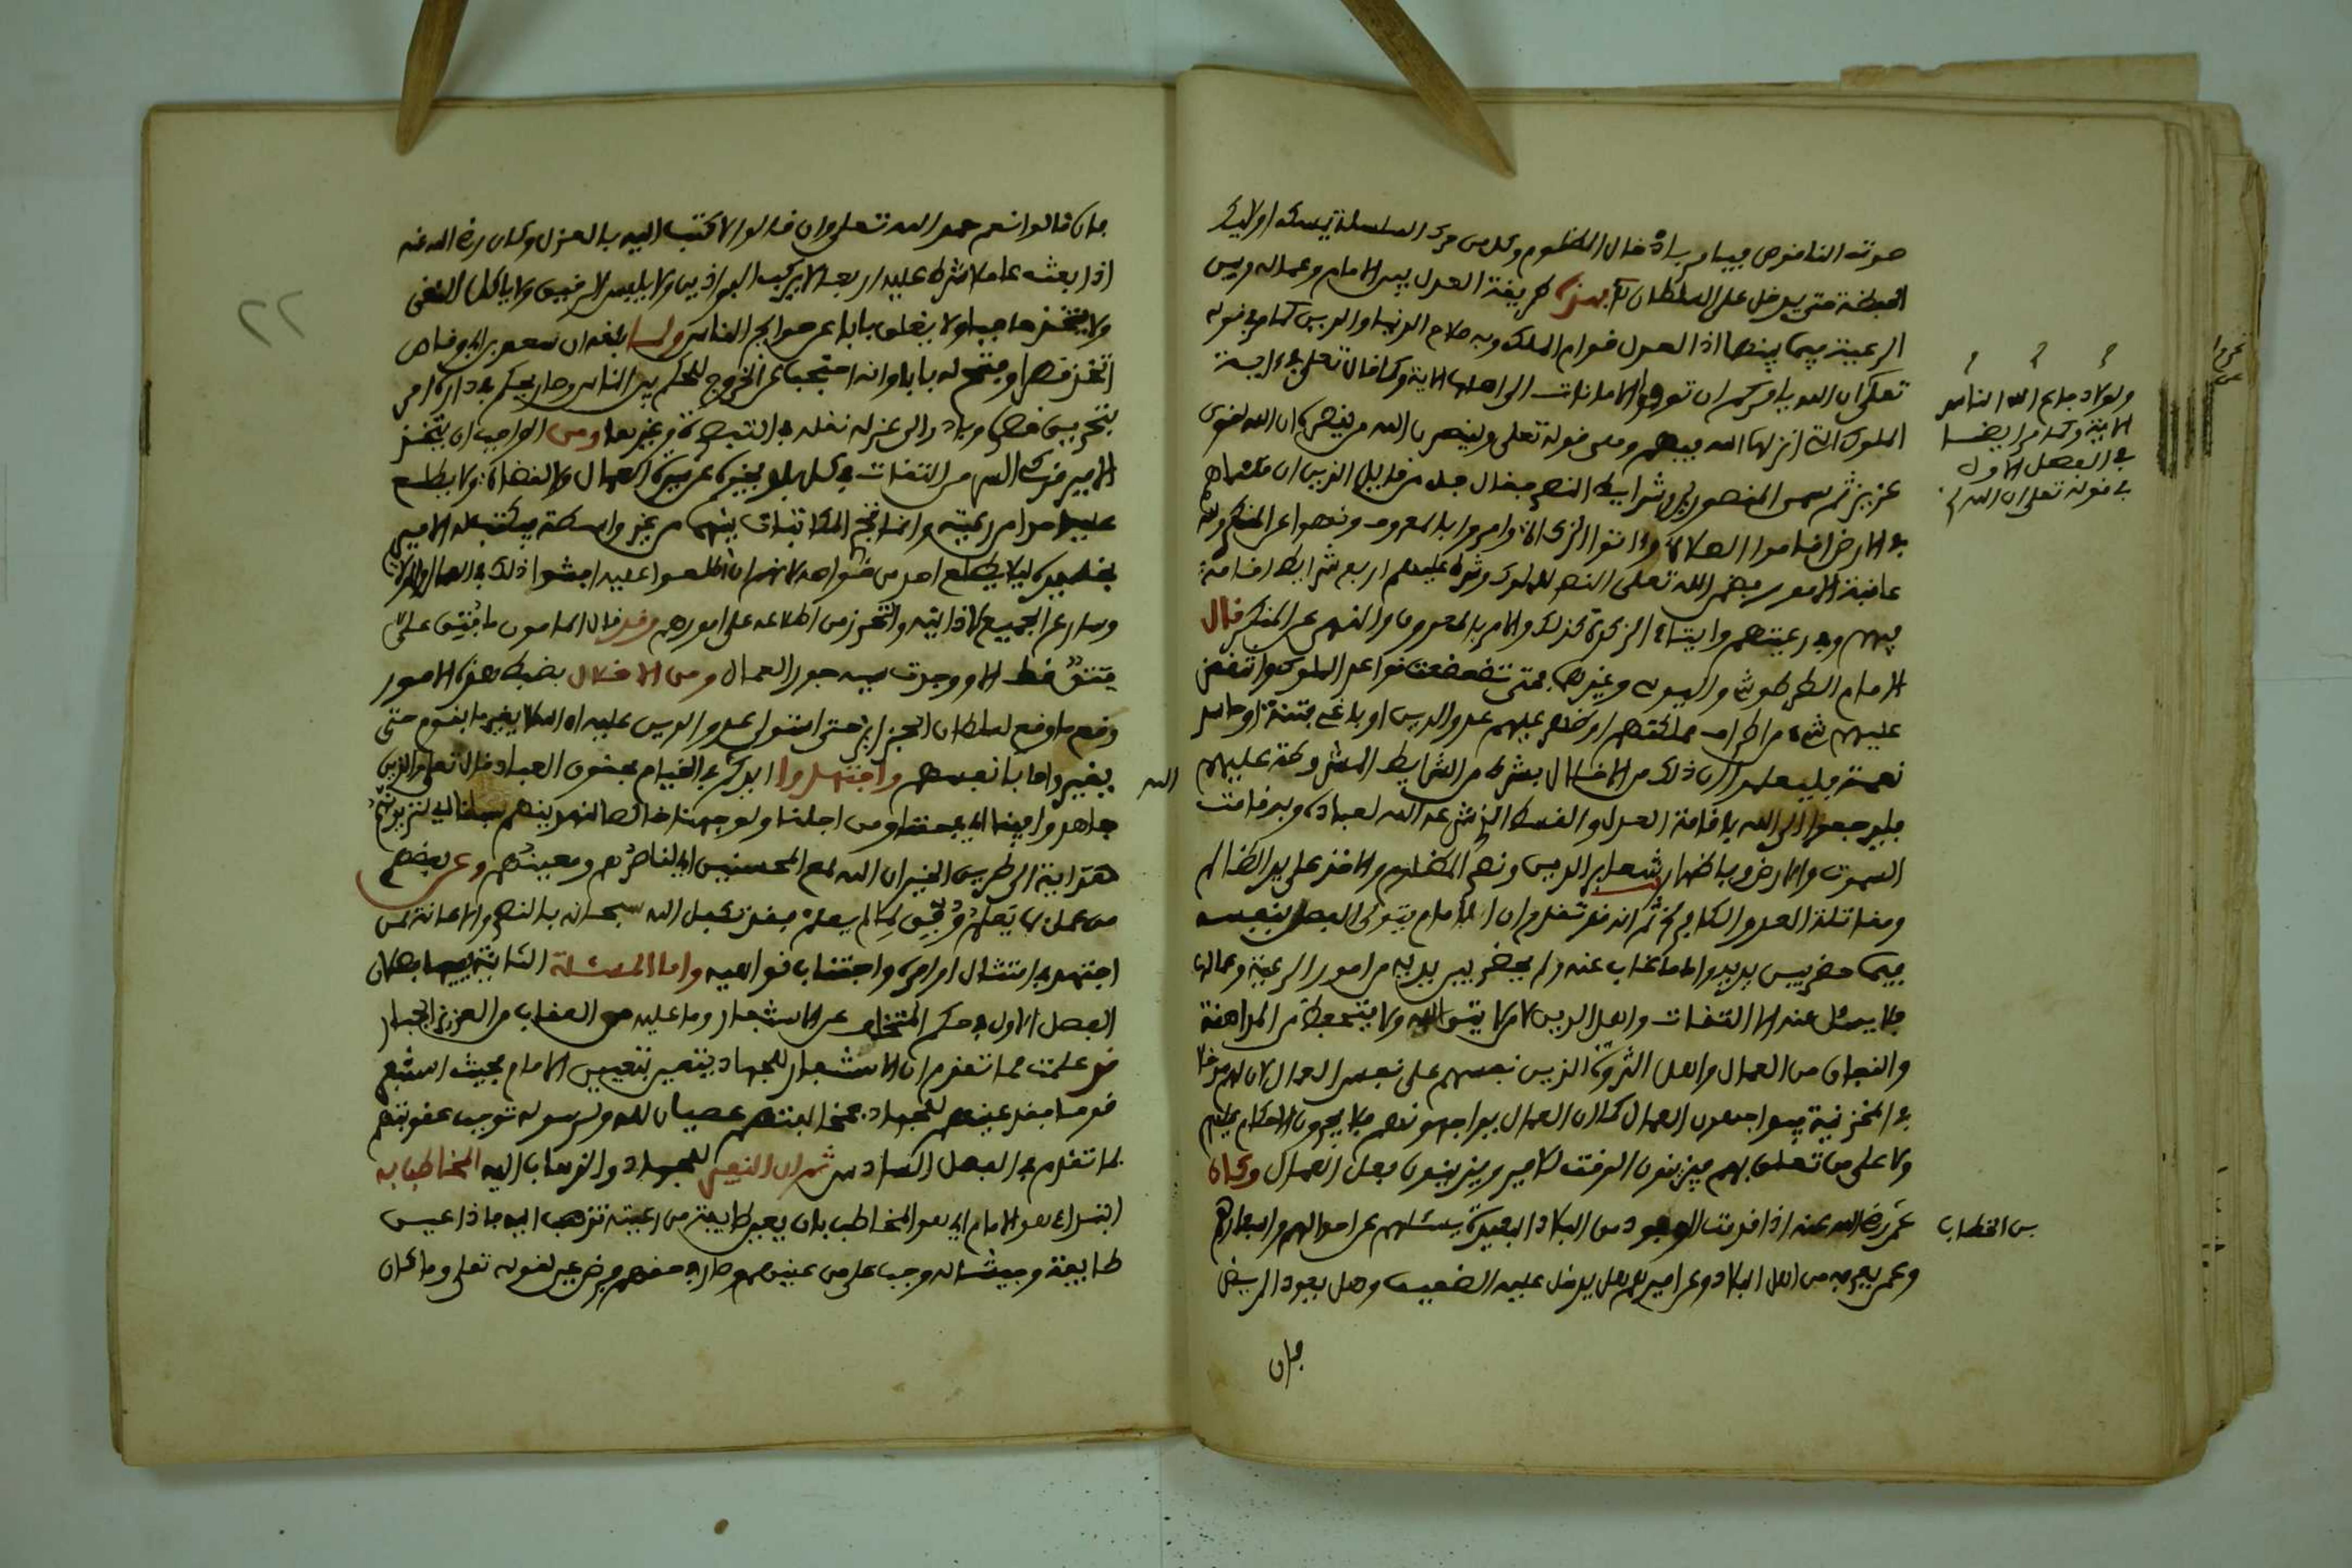 صوته الناقوس فيامر باد خال المظلوم وكل من حرك السلسلة تمسكه اولايك
الحفظة حتى يدخل على السلطان بهذه طريقة العدل بين الامام وعماله وبين
الرعية فيما بينها اذ العدل قوام الملك وبه صلاح الدنيا والدين كما في قوله
تعلى ان الله يامركم ان تودوا الامانات الى اهلها الاية وكما قال تعلى في اية
الملوك التي انزلها الله فيهم ومن قوله تعلى ولينصرن الله من ينصره ان الله لقوى
عزيز ثم سمى المنصورين وشرايط النصر فقال جل من قايل الذين ان مكناهم
في الارض اقاموا الصلاة واتوا الزكاة وامروا بالمعروف ونهوا عن المنكر ولله
عاقبة الامور فضمن الله تعلى النصر للملوك وشرط عليهم اربع شرايط اقامة
فيهم وفي رعيتهم وايتاء الزكوة كذلك والامر بالمعروف والنهي عن المنكر قال
الامام الطرطوشى وغيرهما فمتى تضعضعت قواعد الملوك وانتقض
عليهم شيء من اطراف مملكتهم او ظهر عليهم عدو الدين او باغي فتنة او حاسد
نعمة فليعلموا ان ذلك من الاخلال بشرط من الشرايط المشروطة عليهم
فليرجعوا الى الله باقامة العدل والقسط الذي شرعه الله لعباده وبه قامت
السموت والارض وباظهار شعاير الدين ونصر المظلوم والاخذ على يد الظالم
ومقاتلة العدو الكافر ثم انه قد تقدم ان الامام يتولى الفصل بنفسه
فيما حضر بين يديه واما ما غاب عنه ولم يحضر بين يديه من امور الرعية وعمالها
فلا يسئل عنه الا الثقات واهل الدين لا من لا يتق الله ولا يتحفظ من المداهنة
والنفاق من العمال واهل الثروة الذين نفسهم على نفس العمال لان لهم دخلا
في المخزنية فيواجهون العمال كما ان العمال يواجهونهم فلا يجرون الاحكام عليهم
ولا على من تعلق بهم فيزينون الوقت للامير ويزينون فعل العمال وكان
عمر رضي الله عنه اذا قدمت الوفود من البلاد البعيدة يسئلهم عن احوالهم واسعارهم
وعمن يعرفه من اهل البلاد وعن اميرهم هل يدخل عليه الضعيف وهل يعود المريض
فان
ولولا دفاع الله الناس
الاية وكما مر ايضا
في الفصل الاول
في قوله تعلى ان الله
بن الخطاب
فان قالوا نعم حمد الله تعلى وان قالوا لا كتب اليه بالعزل وكان رضي الله عنه
اذا بعث عاملا شرط عليه اربعا لا يركب البراذين ولا يلبس الرقيق ولا ياكل النقي
ولا يتخذ حاجبا ولا يغلق بابا عن حوايج الناس ولما بلغه ان سعد بن ابي وقاص
اتخذ قصرا وفتح له بابا وانه احتجب عن الخروج للحكم بين الناس وصار يحكم في داره امر
بتحريق قصره وبادر الى عزله نقله في التبصرة وغيرها ومن الواجب ان يتخذ
الامير من الثقات في كل بلد يخبره عن سيرة العمال والقضاة ولا يطلع
عليه احدا من رعيته وانما تقع المكاتبات بينهما من غير واسطة فيكتب له الامير
بخط يده ليلا يطلع احد من خواصه لانهم ان اطلعوا عليه افشوا ذلك في العمال والولاة
وسارع الجميع لاذايته والتحرز من اطلاعه على امورهم وقد قال المامون ما فتق علي
فتق قط الا ووجدت سببه جور العمال ومن الاخلال بضبط هذه الامور
وقع ما وقع لسلطان الجزاير حتى استولى عدو الدين عليه ان الله لا يغير ما بقوم حتى
يغيروا ما بانفسهم واجتهدوا ايدك الله في القيام بحقوق العباد قال تعلى والذين
جاهدوا فينا اي في حقنا ومن اجلنا ولوجهنا خالصا لنهدينهم سبلنا اي لنزيدنهم
هداية الى طريق الخير ان الله لمع المحسنين اي لناصرهم ومعينهم وعن بعضهم
من عمل بما يعلم وفق لما لم يعلم فقد تكفل الله سبحانه بالنصر والاعانة لمن
اجتهد في امتثال اوامره واجتناب نواهيه واما المسئلة الثانية ففيها فصلان
الفصل الاول في حكم المتخلف عن الاستنفار وما عليه من العقاب من العزيز الجبار
قد علمت مما تقدم ان الاستنفار للجهاد يتعين بتعيين الامام بحيث استنفر
قوما فقد عينهم للجهاد فمخالفتهم عصيان لله ولرسوله توجب عقوبتهم
كما تقدم في الفصل السادس ثم ان النفير للجهاد والذهاب اليه المخاطب به
ابتداء هو الامام اي هو المخاطب بان يعين طايفة من رعيته تذهب اليه فاذا عين
طايفة وجيشا له وجب على من عينهم وصار في حقهم فرض عين لقوله تعلى وما كان